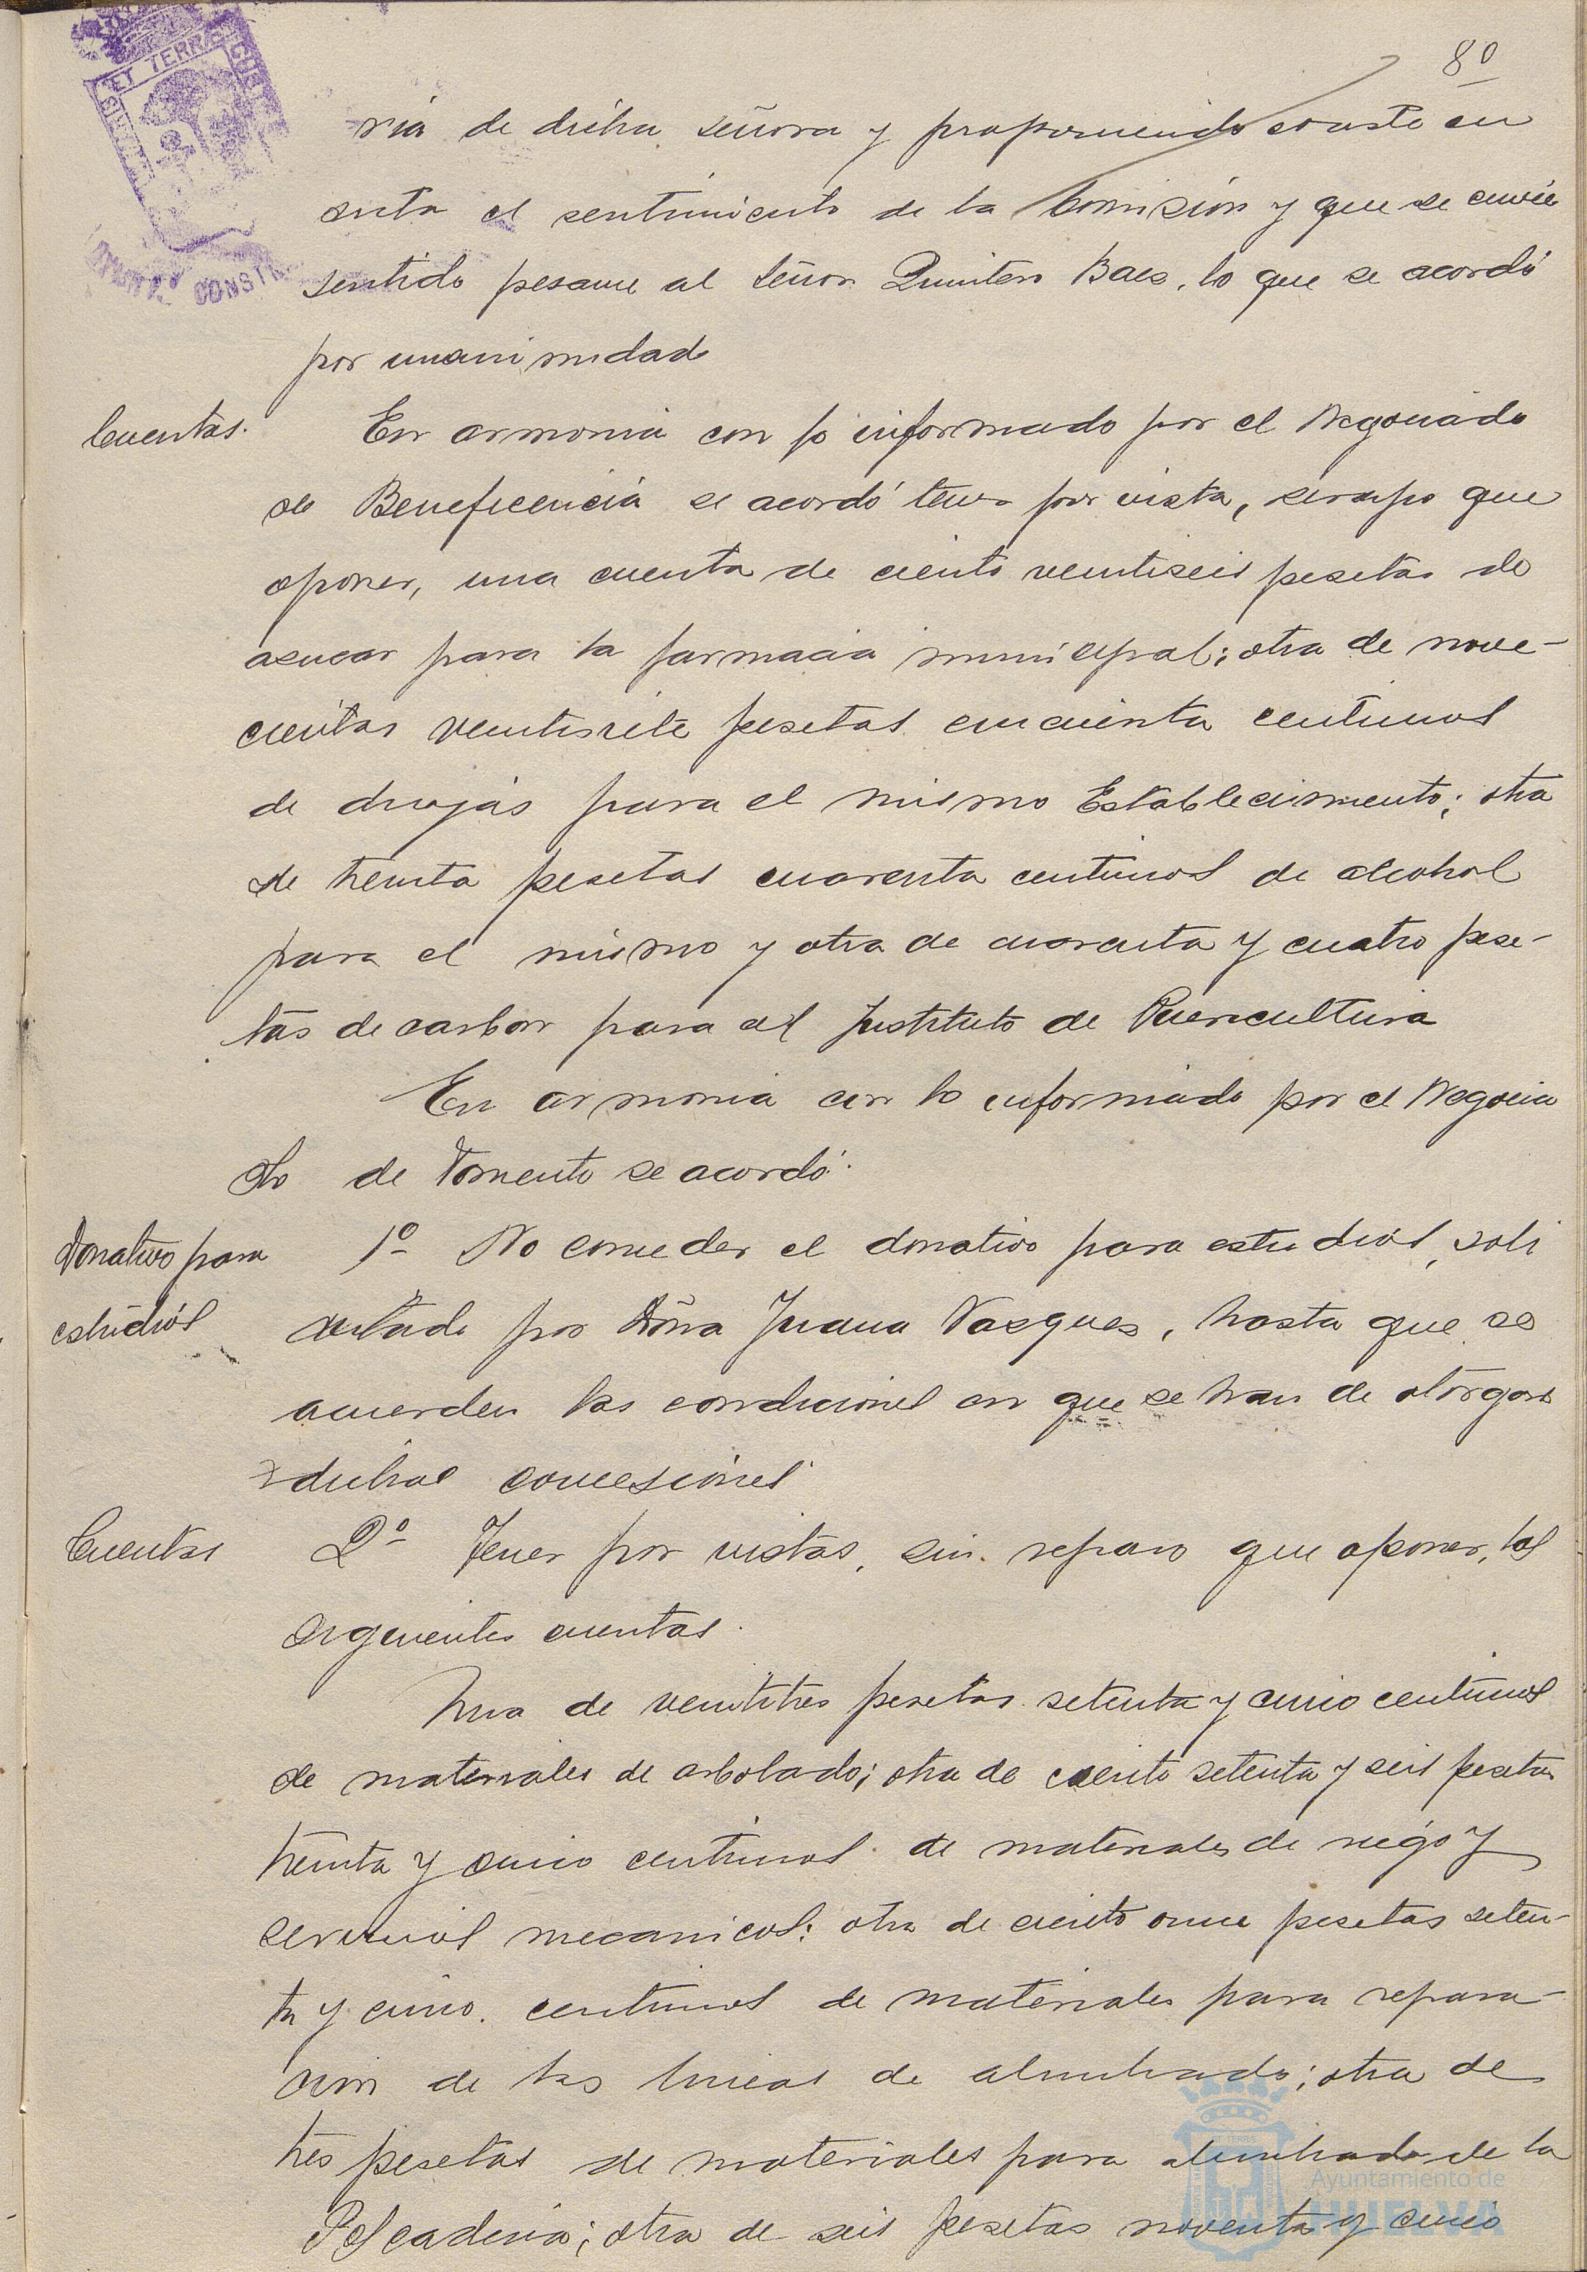 80
ria de dicha señora y proponiendo conste en
acta el sentimiento de la Comisión y que se envie
sentido pesame al señor Quintero Baez, lo que se acordó
por unanimidad
Cuentas.
En armonia con lo informado por el Negociado
de Beneficencia se acordó tener por vista, sin reparo que
oponer, una cuenta de ciento veintiseis pesetas de
azucar para la farmacia municipal; otra de nove-
cientas veintisiete pesetas cincuenta centimos
de drogas para el mismo Establecimiento; otra
de treinta pesetas cuarenta centimos de alcohol
para el mismo y otra de cuarenta y cuatro pese-
tas de carbon para el Instituto de Puericultura
En armonia con lo informado por el Negocia
do de Fomento se acordó:
Donativo para
estudios
1º No conceder el donativo para estudios, soli
citado por Doña Juana Vazquez, hasta que se
acuerden las condiciones en que se han de otorgar
dichas concesiones
Cuentas
2º Tener por vistas, sin reparo que oponer, las
siguientes cuentas.
Una de veintitres pesetas setenta y cinco centimos
de materiales de arbolado; otra de ciento setenta y seis pesetas
treinta y cinco centimos de materiales de riego y
servicios mecanicos; otra de ciento once pesetas seten-
ta y cinco centimos de materiales para repara-
cion de las lineas de alumbrado; otra de
tres pesetas de materiales para alumbrado de la
Pescaderia; otra de seis pesetas noventa y cinco
ET TERRÆ CUST
CONSTI
Ayuntamiento de
HUELVA